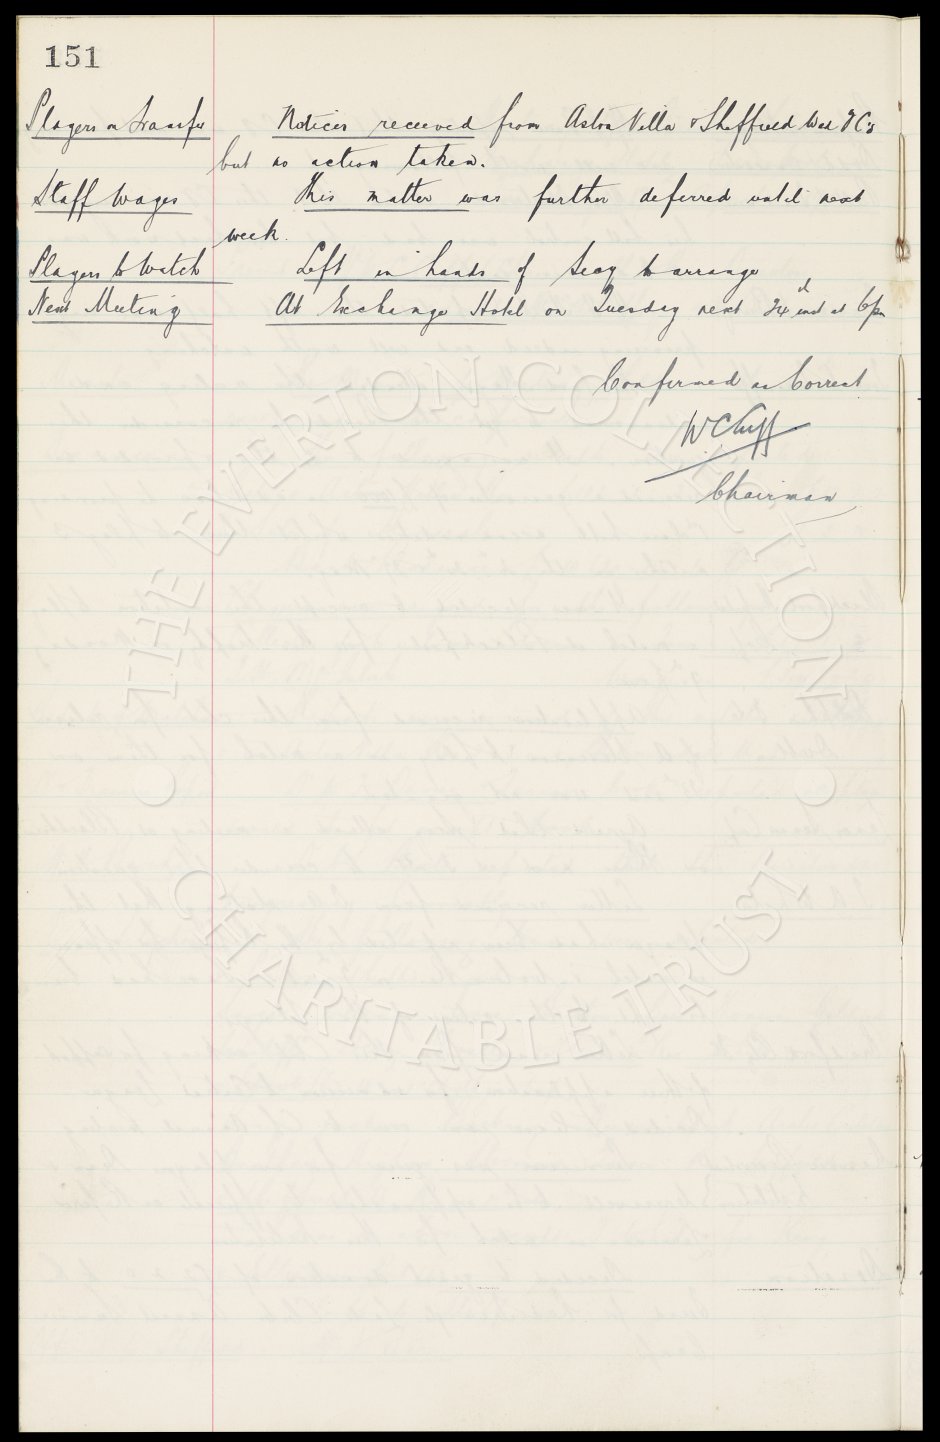 151
Players on Transfer Notices received from Aston Villa & Sheffield Wed F C's
but no action taken.
Staff Wages This matter was further deferred until next
week.
Players to Watch Left in hands of Secy to arrange
Next Meeting At Exchange Hotel on Tuesday next 24th inst at 6 pm
Confirmed as Correct
W C Cuff
Chairman
THE EVERTON COLLECTION
CHARITABLE TRUST